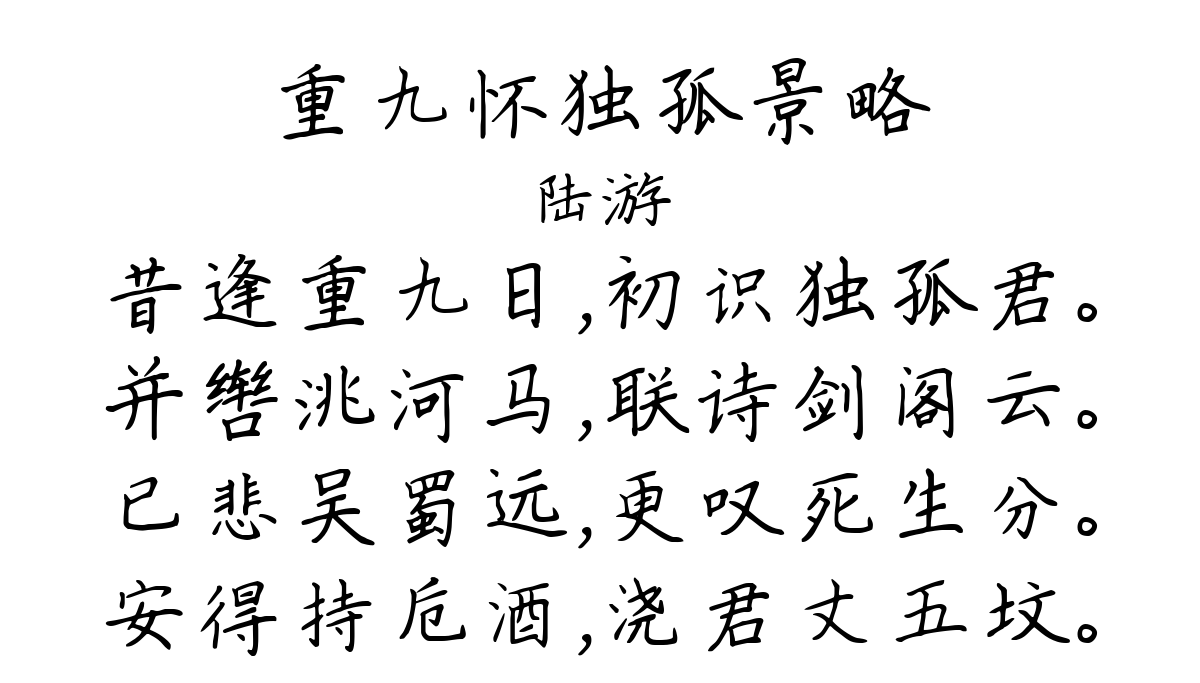 重九怀独孤景略
陆游
昔逢重九日,初识独孤君。
并辔洮河马,联诗剑阁云。
已悲吴蜀远,更叹死生分。
安得持卮酒,浇君丈五坟。